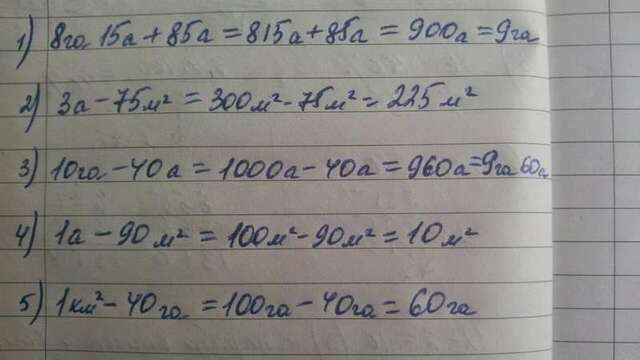 1) 8га 15а + 85а = 815а + 85а = 900а = 9га
2) 3а - 75м² = 300м² - 75м² = 225м²
3) 10га - 40а = 1000а - 40а = 960а = 9га 60а
4) 1а - 90м² = 100м² - 90м² = 10м²
5) 1км² - 40га = 100га - 40га = 60га